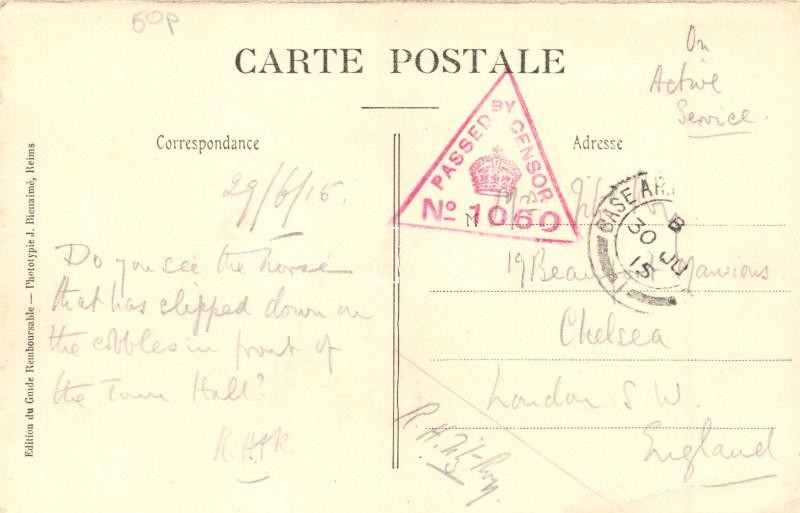 50p
CARTE POSTALE
On
Active
Service.
PASSED BY CENSOR
No 1060
Correspondance
Adresse
29/6/15.
Do you see the horse
that has slipped down on
the cobbles in front of
the Town Hall?
M
BASE AR
B
30 JU
15
19 Beaufort Mansions
Chelsea
London S.W.
England
R.H.
Edition du Guide Remboursable — Phototypie J. Bienaimé, Reims